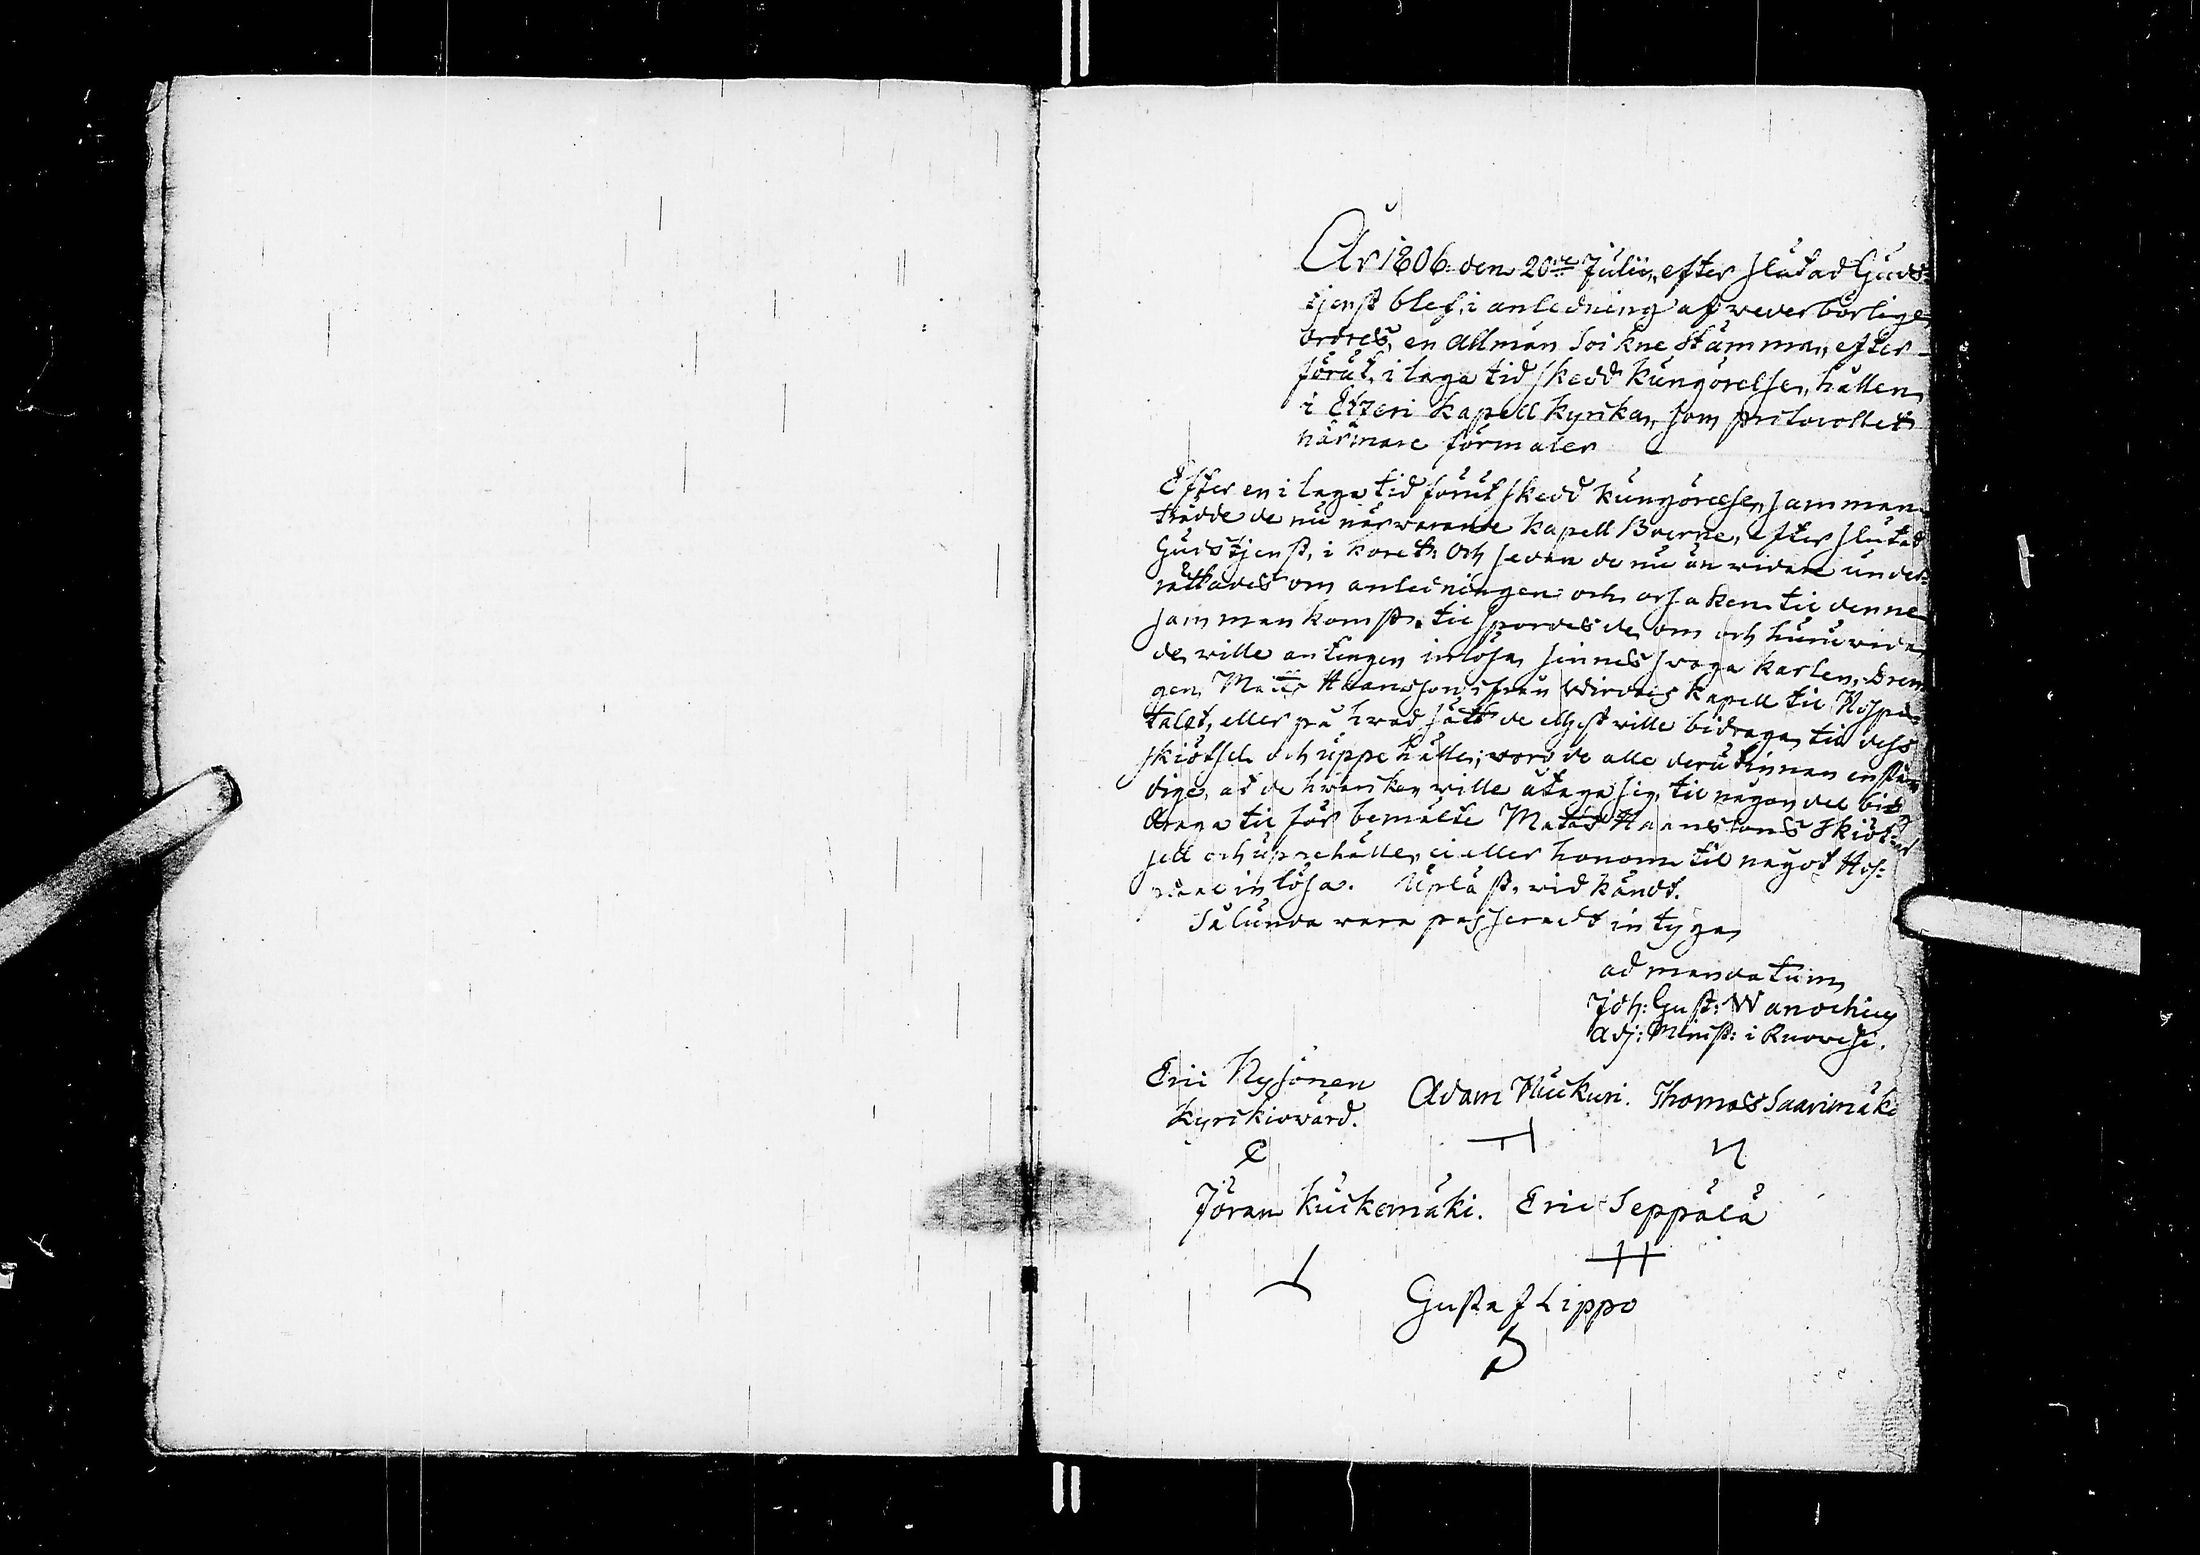 År 1806 den 20de Julii, efter slutad Guds-
tjenst blef, i anledning af wederbörlige
ordres, en allmän Sockne Stämma, efter
förut, i laga tid skedd kungörelse, hållen
i Etzeri kapell kyrka, som protocollet
närmare förmäler
Efter en i laga tid förut skedd kungörelse, samman-
trädde de nu närwarande kapell Boerne, efter slutad
Gudstjenst, i koret: Och sedan de nu än widare under-
rättades om anledningen och orsaken til denne
samman komst, tilspordes de, om och huruwida
de wille antingen inlösa sinnes swaga karlen, Dren-
gen Matts Hansson ifrån Wirdois kapell til Hospi-
talet, eller på hwad sätt de eljest wille bidraga til dess
skiötsel och uppehälle; woro de alle derutinnan enstän-
dige, at de hwarken wille åtaga sig, til någon del bi-
draga til för bemälte Matts Hanssons Skiöt-
sell och uppehälle, ei eller honom til något Hos-
pital inlösa. Upläst, wid kändt.
Sålunda wara passeradt intygar
ad mandatum
Joh: Gust: Wanochius
Adj: Minist: i Ruowesi.
Eric Nysönen Adam Kuckuri. Thomas Saarimäki
kyrckiowärd.
Jöran Kuckomäki. Eric Seppälä
Gustaf Lippo